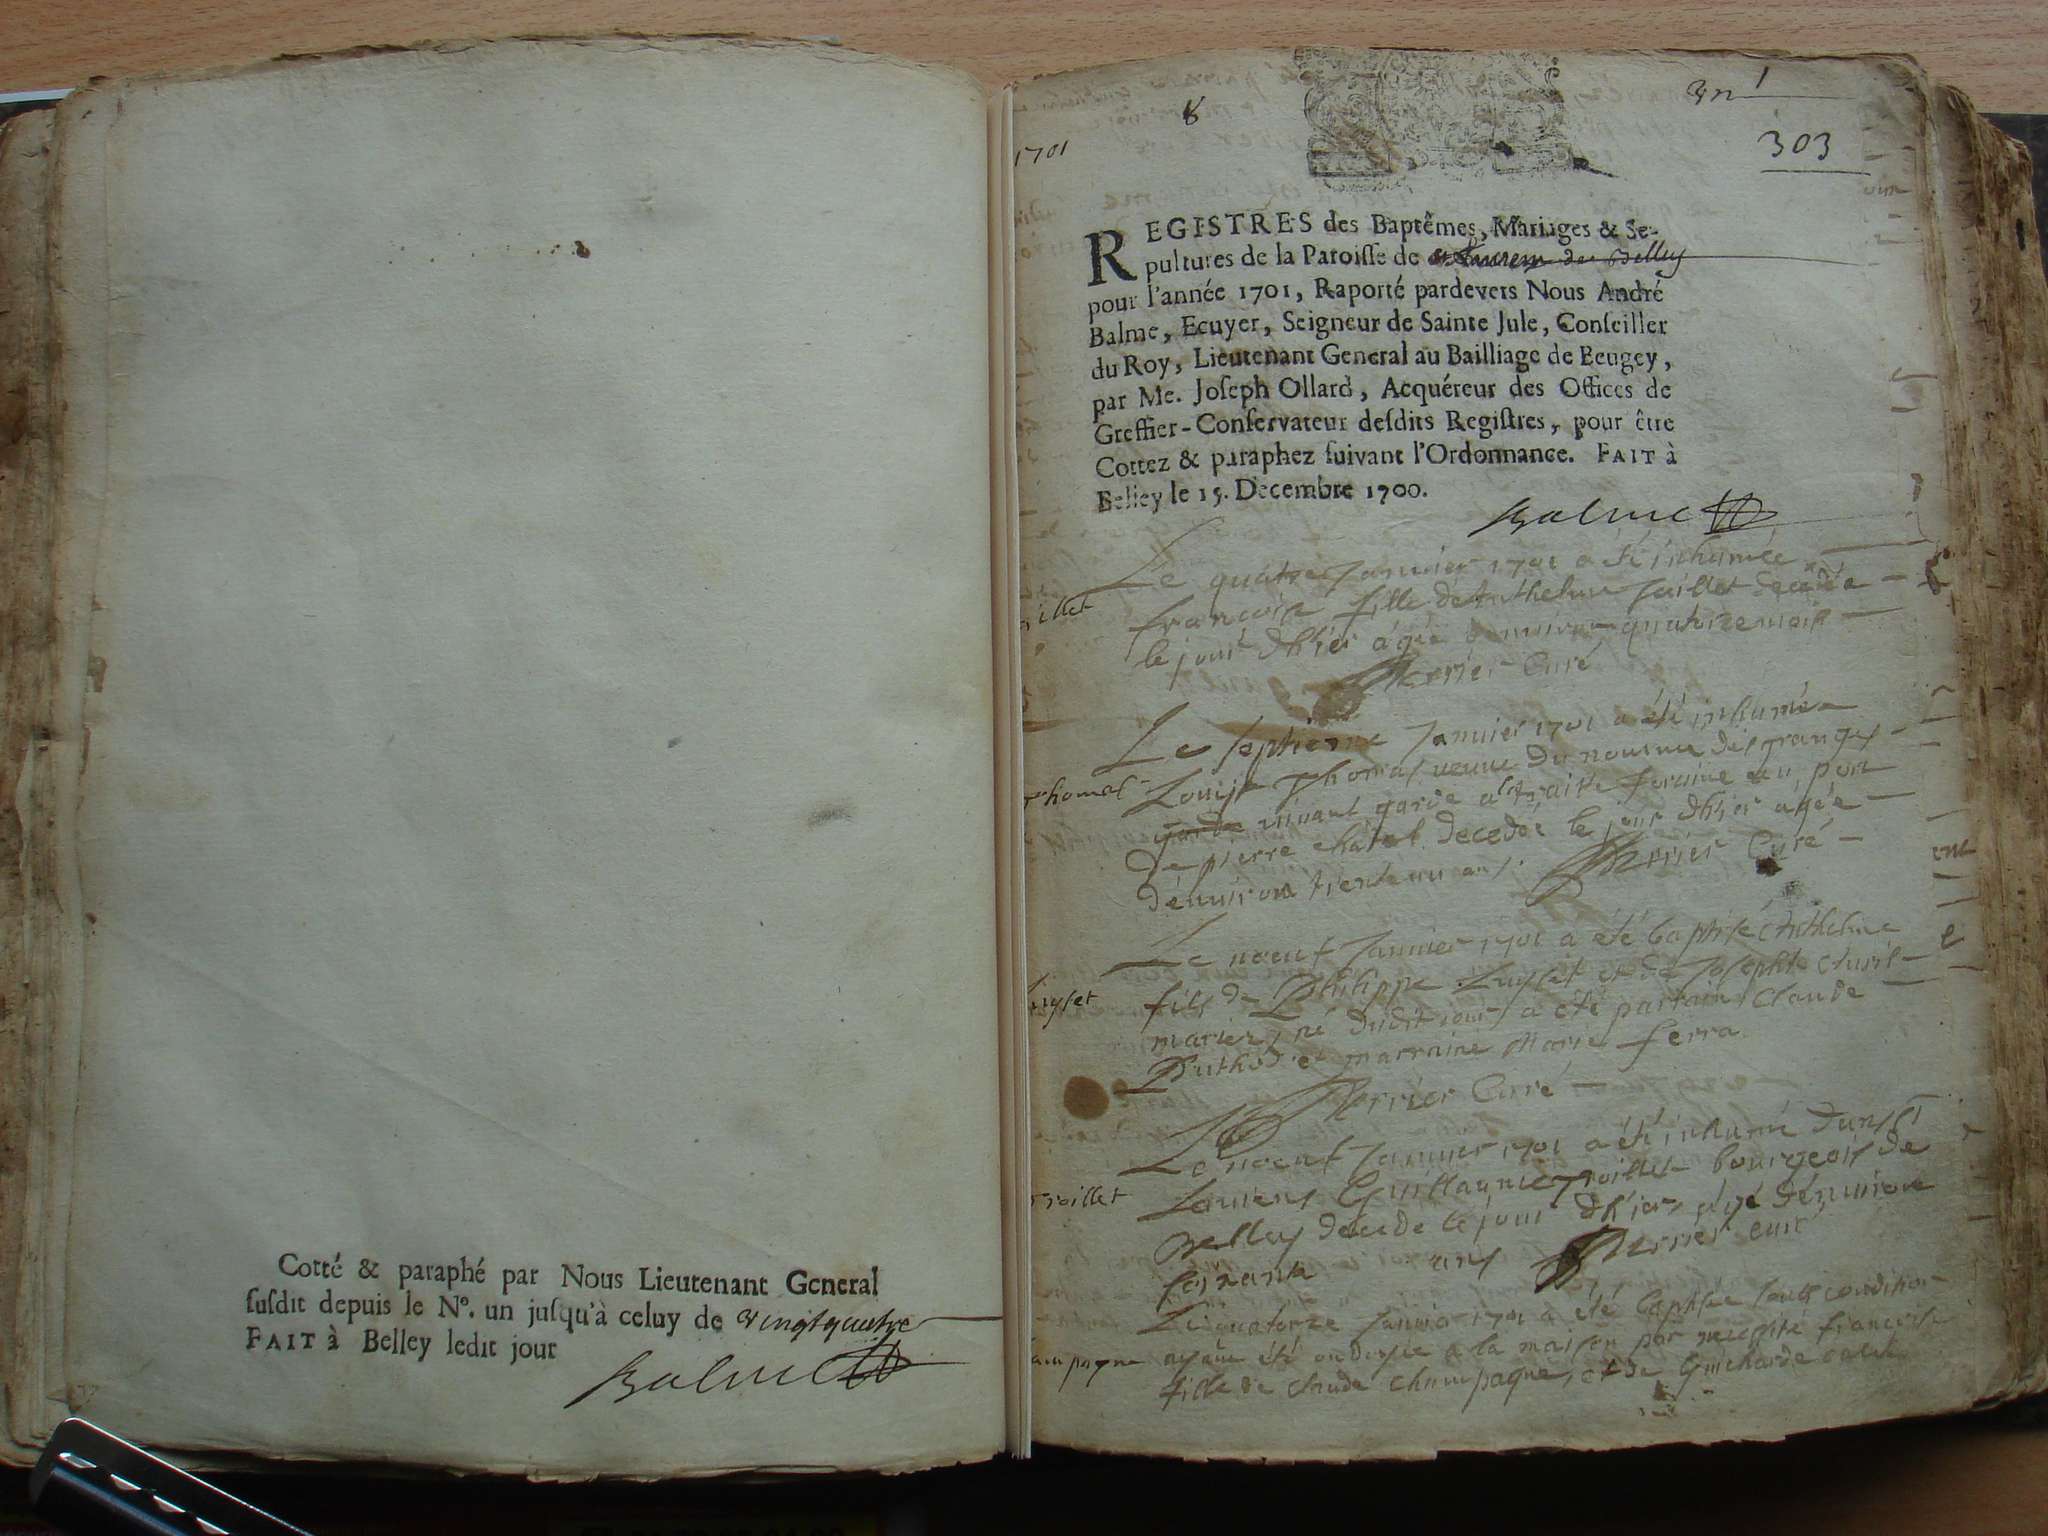 Cotté & paraphé par Nous Lieutenant General
ſuſdit depuis le Nº. un juſqu'à celuy de vingt quatre
FAIT à Belley ledit jour
Balme
1701
8
un 1
303
REGISTRES des Baptêmes, Mariages & Se-
pultures de la Paroiſſe de St Laurent de Belley
pour l'année 1701, Raporté pardevers Nous André
Balme, Ecuyer, Seigneur de Sainte Jule, Conſeiller
du Roy, Lieutenant General au Bailliage de Beugey,
par Me. Joſeph Ollard, Acquéreur des Offices de
Greffier-Conſervateur deſdits Regiſtres, pour être
Cottez & paraphez ſuivant l'Ordonnance. FAIT à
Belley le 15. Decembre 1700.
Balme
Le quatre Janvier 1701 a été inhumée
illet
francoise fille d'Anthelme Juillet decedée
le jour d'hier agée denviron quatre mois
Perrier Curé
Le septieme Janvier 1701 a été inhumée
Thomas
Louise Thomas veuve du nommé desgranges
garde vivant garde a la traite foraine au pon
de pierre chatel decedée le jour d'hier agée
d'environ trente un ans. Perrier Curé
Le noeuf Janvier 1701 a été baptisé Anthelme
uyset
fils de Philippe Luyset et de Josephte
mariez, né dudit jour, a été parrain Claude
Buthod et marraine Marie ferra
Perrier Curé
Le noeuf Janvier 1701 a été inhumé dans St
Troillet
Laurens Guillaume Troillet bourgeois de
Belley decedé le jour d'hier agé d'environ
soixante ans Perrier curé
Le quatorze Janvier 1701 a été baptisée sous condition
ampagne
ayant été ondoyée a la maison par necessité francoise
fille de claude champagne, et de Guicharde